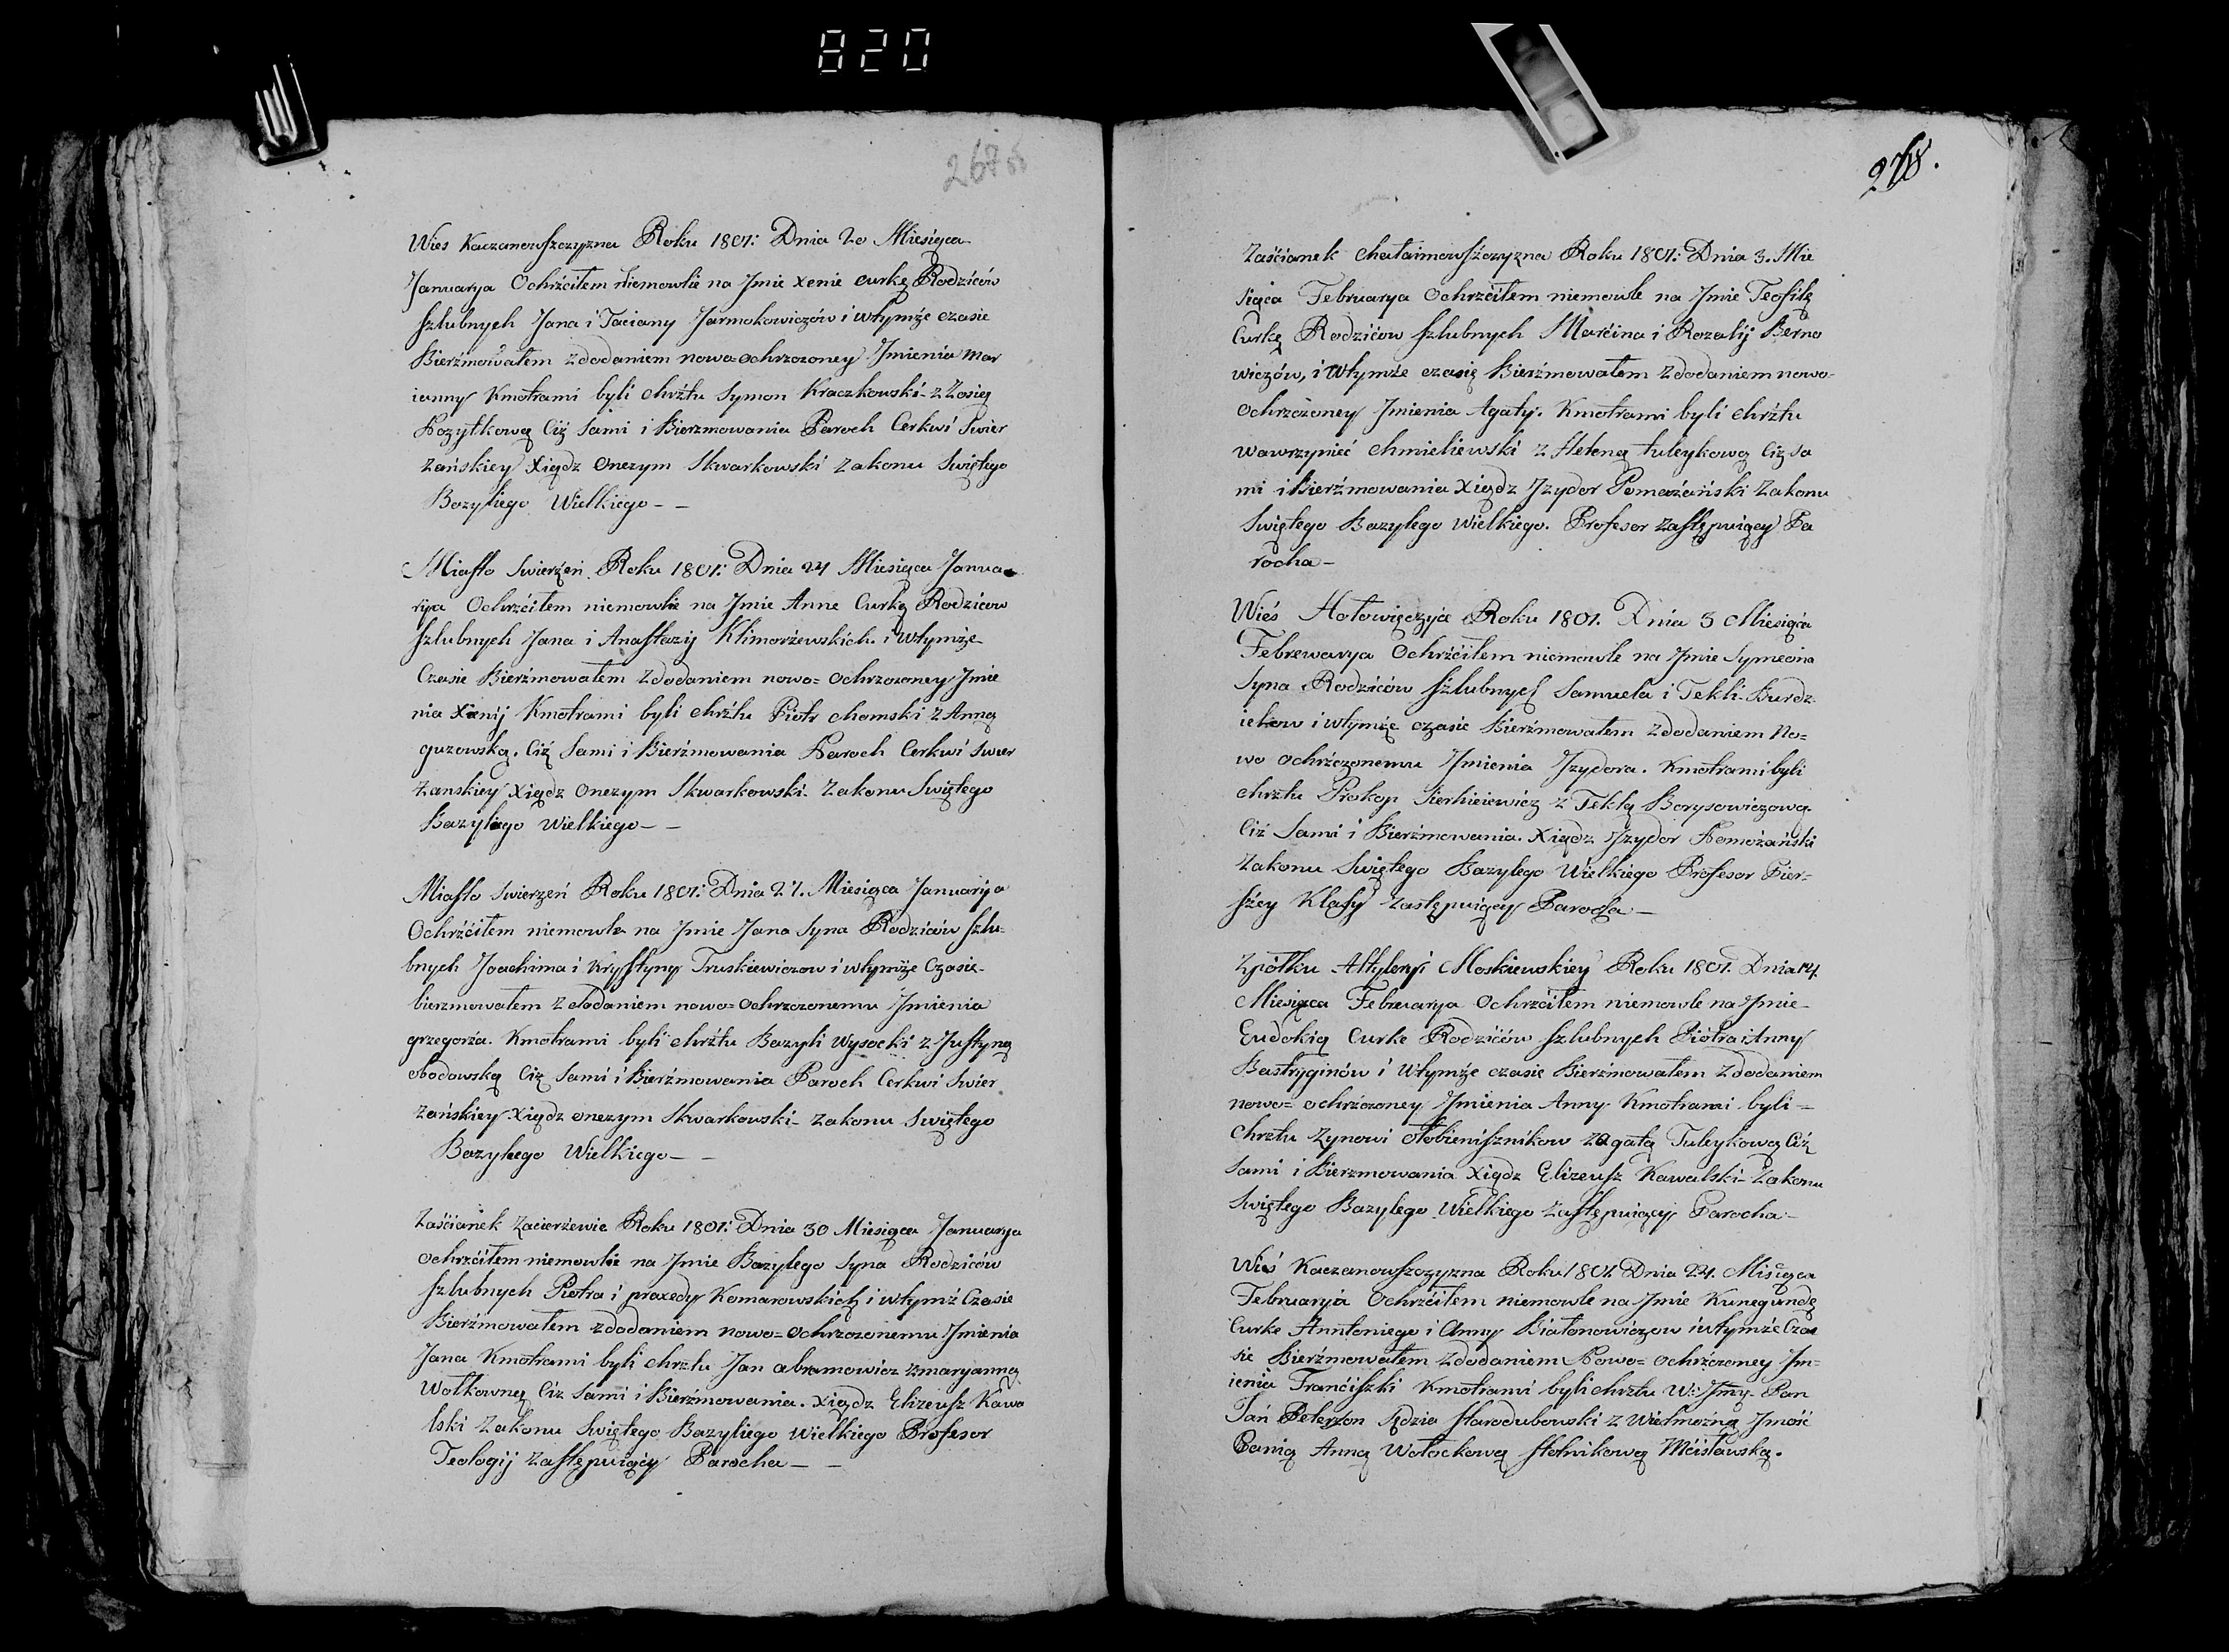 820
267 об
268.
Wies Kaczanowszczyzna Roku 1801: Dnia 20 Miesiąca
Januarya Ochrźciłem niemowlie na Jmie Xenie curkę Rodziców
szlubnych Jana i Taciany Jarmokowiczów i wtymże czasie
Bierźmowałem zdodaniem nowo-ochrzczoney Jmienia Mar
ianny Kmotrami byli chrźtu Symon Kraczkowski z Zosią
Pozytkową Ciż sami i Bierzmowania Paroch Cerkwi Swier
żańskiey Xiądz Onezym Skwarkowski zakonu Swiętego
Bazyliego Wielkiego - -
Miasto Swierżeń Roku 1801: Dnia 24 Miesiąca Janua
rya Ochrźciłem niemowlie na Jmie Anne Curkę Rodziców
szlubnych Jana i Anastazij Klimorżewskich i wtymże
Czasie Bierźmowałem zdodaniem nowo=ochrzczoney Jmie
nia Xienij Kmotrami byli chrźtu Piotr Chomski z Anną
guzowską. Ciż sami i Bierźmowania Paroch Cerkwi Swier
żanskiey Xiądz Onezym Skwarkowski zakonu Swiętego
Bazyliego Wielkiego - -
Miasto Swierżeń Roku 1801: Dnia 27. Miesiąca Januarija
Ochrźciłem niemowle na Jmie Jana Syna Rodziców szlu=
bnych Joachima i Krystyny Truskiewiczow i wtymże Czasie
bierzmowałem zdodaniem nowo=ochrzczonemu Jmienia
grzegorźa. Kmotrami byli chrźtu Bazyli Wysocki z Justyną
obodowską Ciż sami i Bierźmowania Paroch Cerkwi Swier
żańskiey Xiądz onezym Skwarkowski zakonu Swiętego
Bazylego Wielkiego - -
Zaścianek Zacierżewie Roku 1801: Dnia 30 Miesiąca Januarya
ochrźciłem niemowlie na Jmie Bazylego Syna Rodziców
szlubnych Piotra i praxedy Komarowskich i wtymż Czasie
Bierźmowałem zdodaniem nowo=ochrzczonemu Jmienia
Jana Kmotrami byli chrztu Jan abramowicz zmaryanną
Wołkowną Ciż sami i Bierźmowania. Xiądz Elizeusz Kawa
lski Zakonu Swiętego Bazyliego Wielkiego Profesor
Teologij zastępuiący Parocha - -
Zaścianek Chałaimowszczyzna Roku 1801: Dnia 3. Mie
siąca Februarya Ochrzciłem niemowle na Jmie Teofilę
Curkę Rodziców szlubnych Marcina i Rozalij Berno
wiczów, i wtymże czasię Bierźmowałem zdodaniem nowo
ochrzczoney Jmienia Agaty. Kmotrami byli chrźtu
wawrzyniec Chmieliewski z Heleną tuleykową Ciż sa
mi i Bierźmowania Xiądz Jzydor Pomażański Zakonu
Swiętego Bazylego Wielkiego. Profesor zastępuiący Pa
rocha -
Wieś Hołowięczyce Roku 1801. Dnia 3 Miesiąca
Febrewarya Ochrźciłem niemowle na Jmie Symeona
Syna Rodziców szlubnych Samuela i Tekli Burdz
iełow i wtymże czasie Bierźmowałem zdodaniem No=
wo ochrźczonemu Jmienia Jzydora. Kmotrami byli
chrztu Prokop Sierhieiewicz z Teklą Borysowiczową
Ciż Sami i Bierźmowania. Xiądz Jzydor Pomożański
Zakonu Swiętego Bazylego Wielkiego Profesor Pier=
szey Klassy zastępuiący Parocha -
Zpółku Astylery Moskiewskiey Roku 1801. Dnia 14.
Miesiąca Februarya Ochrźciłem niemowle na Jmie
Eudokią Curke Rodziców szlubnych Piotra i Anny
Bastryginów i Wtymże czasie Bierźmowałem zdodaniem
nowo=ochrźczoney Jmienia Anny Kmotrami byli =
chrztu Zynowi zagatą Tuleykową Ciż
Sami i Bierzmowania Xiądz Elizeusz Kawalski Zakonu
Swiętego Bazylego Wielkiego zastępuiący Parocha -
Wieś Kaczanowszczyzna Roku 1801 Dnia 24. Misiąca
Februaryia Ochrźciłem niemowle na Jmie Kunegundę
Curke Anntoniego i Anny Białonowiczow iwtymźe Cza
sie Bierźmowałem zdodaniem Nowo=ochrźczoney Jm=
ienia Franciszki Kmotrami byli chrztu W: Jmy. Pan
Jań Peterson Sędzia starodubowski z Wielmożną Jmość
Panią Anną Wołockową stolnikową Mcisławską.